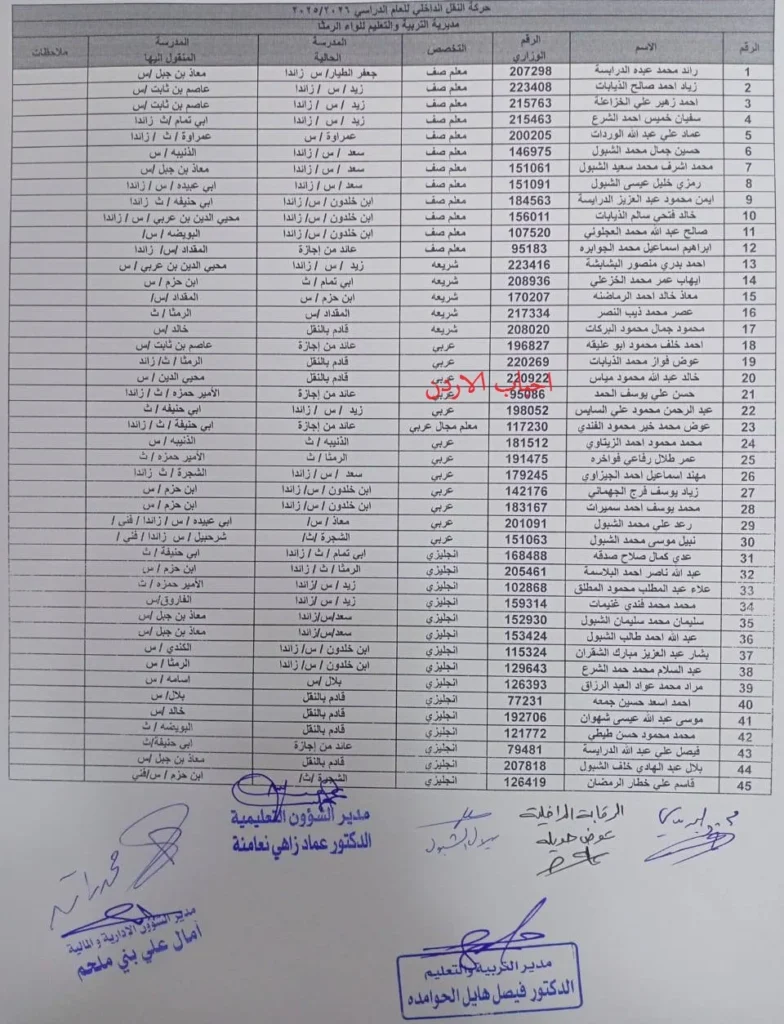 حركة النقل الداخلي للعام الدراسي ٢٠٢٥/٢٠٢٦
مديرية التربية والتعليم للواء الرمثا
الرقم الاسم الرقم الوزاري التخصص المدرسة الحالية المدرسة المنقول اليها ملاحظات
1 رائد محمد عبده الدرابسة 207298 معلم صف جعفر الطيار/ س زائدا معاذ بن جبل /س
2 زياد احمد صالح الذيابات 223408 معلم صف زيد / س / زائدا عاصم بن ثابت /س
3 احمد زهير علي الخزاعلة 215763 معلم صف زيد / س / زائدا عاصم بن ثابت /س
4 سفيان خميس احمد الشرع 215463 معلم صف زيد / س / زائدا ابي تمام /ث زائدا
5 عماد علي عبد الله الوردات 200205 معلم صف عمراوة / س عمراوة / ث / زائدا
6 حسين جمال محمد الشبول 146975 معلم صف سعد / س / زائدا الذنيبه / س
7 محمد اشرف محمد سعيد الشبول 151061 معلم صف سعد / س / زائدا معاذ بن جبل /س
8 رمزي خليل عيسى الشبول 151091 معلم صف سعد / س / زائدا ابي عبيده / س / زائدا
9 ايمن محمود عبد العزيز الدرابسة 184563 معلم صف ابن خلدون / س/ زائدا ابي حنيفه / ث زائدا
10 خالد فتحي سالم الذيابات 156011 معلم صف ابن خلدون / س/ زائدا محيي الدين بن عربي / س / زائدا
11 صالح عبد الله محمد العجلوني 107520 معلم صف ابن خلدون / س/ زائدا البويضه / س/
12 ابراهيم اسماعيل محمد الجوابره 95183 معلم صف عائد من إجازة المقداد /س/ زائدا
13 احمد بدري منصور البشابشة 223416 شريعه زيد / س / زائدا محيي الدين بن عربي / س
14 ايهاب عمر محمد الخزعلي 208936 شريعه ابي تمام / ث ابن حزم / س
15 معاذ خالد احمد الرماضنه 170207 شريعه ابن حزم / س المقداد /س/
16 عصر محمد ذيب النصر 217334 شريعه المقداد /س الرمثا / ث
17 محمود جمال محمود البركات 208020 شريعه قادم بالنقل خالد /س
18 احمد خلف محمود ابو عليقه 196827 عربي عائد من إجازة عاصم بن ثابت /س
19 عوض فواز محمد الذيابات 220269 عربي قادم بالنقل الرمثا / ث/ زائد
20 خالد عبد الله محمود مياس 220922 عربي قادم بالنقل محيي الدين / س
21 حسن علي يوسف الحمد 95086 عربي عائد من إجازة الأمير حمزه / ث / زائدا
احباب الاردن
22 عبد الرحمن محمود علي السايس 198052 عربي زيد / س / زائدا ابي حنيفه / ث
23 عوض محمد خير محمود الفندي 117230 معلم مجال عربي عائد من إجازة ابي حنيفة / ث/ زائدا
24 محمد محمود احمد الزيتاوي 181512 عربي الذنيبه / ث الذنيبه / س
25 عمر طلال رفاعي فواخره 191475 عربي الرمثا / ث الأمير حمزه / ث
26 مهند اسماعيل احمد الجيزاوي 179245 عربي سعد / س / زائدا الشجرة / ث زائدا
27 زياد يوسف فرج الجهماني 142176 عربي ابن خلدون / س/ زائدا ابن حزم / س
28 محمد يوسف احمد سميرات 183167 عربي ابن خلدون / س/ زائدا ابن حزم / س
29 رعد علي محمد الشبول 201091 عربي معاذ / س/ ابي عبيده / س / زائدا / فنى /
30 نبيل موسى محمد الشبول 151063 عربي الشجرة /ث/ شرحبيل / س / زائدا / فني /
31 عدي كمال صلاح صدقه 168488 انجليزي ابي تمام / ث/ زائدا ابي حنيفة / ث
32 عبد الله ناصر احمد البلاسمة 205461 انجليزي الرمثا / ث / زائدا ابن حزم / س
33 علاء عبد المطلب محمود المطلق 102868 انجليزي زيد / س /زائدا الأمير حمزه / ث
34 محمد محمد فندي غنيمات 159314 انجليزي زيد / س /زائدا الفاروق/س
35 سليمان محمد سليمان الشبول 152930 انجليزي سعد/س/زائدا معاذ بن جبل /س
36 عبد الله احمد طالب الشبول 153424 انجليزي سعد/س/زائدا معاذ بن جبل /س
37 بشار عبد العزيز مبارك الشقران 115324 انجليزي ابن خلدون / س/ زائدا الكندي / س
38 عبد السلام محمد حمد الشرع 129643 انجليزي ابن خلدون / س/ زائدا الرمثا / س
39 مراد محمد عواد العبد الرزاق 126393 انجليزي بلال /س اسامه / س
40 احمد اسعد حسين جمعه 77231 انجليزي قادم بالنقل بلال/ س
41 موسى عبد الله عيسى شهوان 192706 انجليزي قادم بالنقل خالد /س
42 محمد محمود حسن طيطي 121772 انجليزي قادم بالنقل البويضه / ث
43 فيصل علي عبد الله الدرابسة 79481 انجليزي عائد من إجازة ابي حنيفة/ث
44 بلال عبد الهادي خلف الشبول 207818 انجليزي قادم بالنقل معاذ بن جبل /س
45 قاسم علي خطار الرمضان 126419 انجليزي الشجرة /ث/ ابن حزم / س/فني
الرقابة الداخلية
عوض
مدير الشؤون التعليمية
الدكتور عماد زاهي نعامنة
مدير الشؤون الادارية والمالية
آمال علي بني ملحم
مدير التربية والتعليم
الدكتور فيصل هايل الحوامده